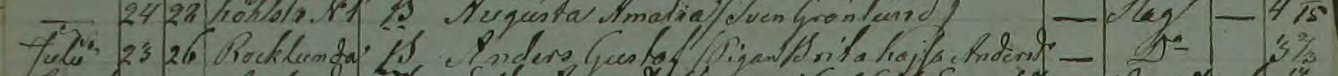 — 24 22 Kohlsta N1 B Augusta Amalia (Sven Grönlund) — Slag — 4 15
Julii 23 26 Rocklunda B Anders Gustaf (Pigan Brita Kajsa Anders — Do — 3 2/3